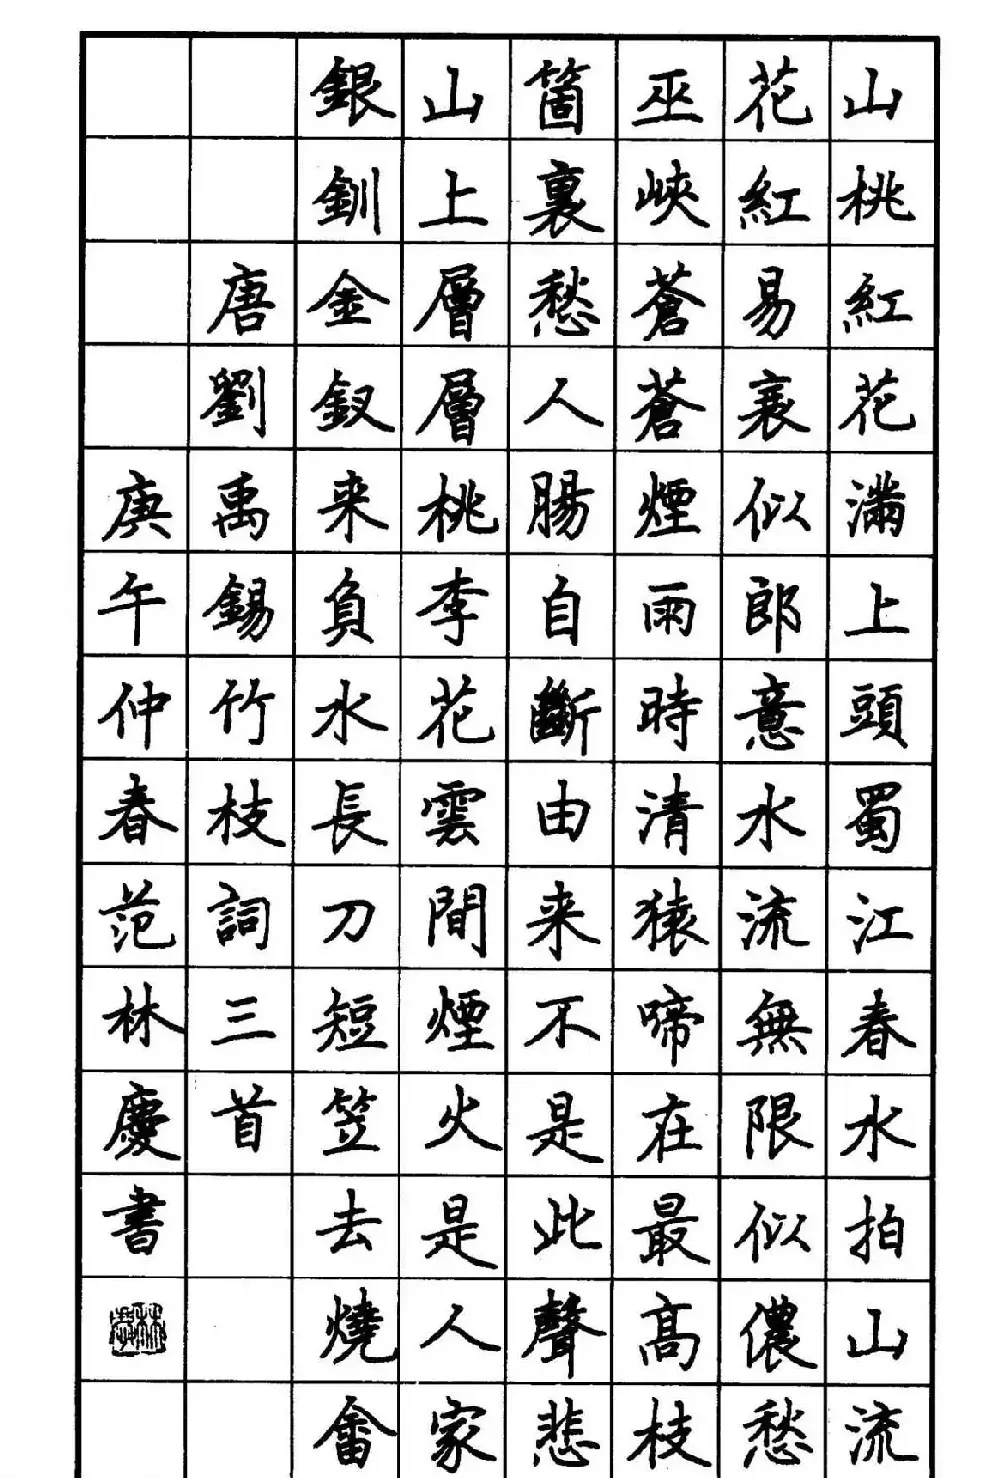 山桃紅花滿上頭蜀江春水拍山流
花紅易衰似郎意水流無限似儂愁
巫峽蒼蒼煙雨時清猿啼在最高枝
箇裏愁人腸自斷由来不是此聲悲
山上層層桃李花雲間煙火是人家
銀釧金釵来負水長刀短笠去燒畬
唐劉禹錫竹枝詞三首
庚午仲春范林慶書